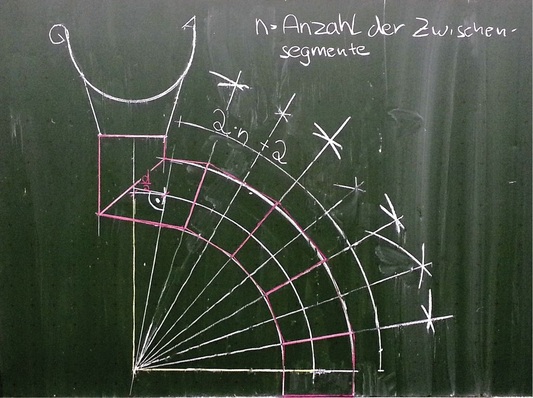 Q A n = Anzahl der Zwischen-
segmente
2·n + 2